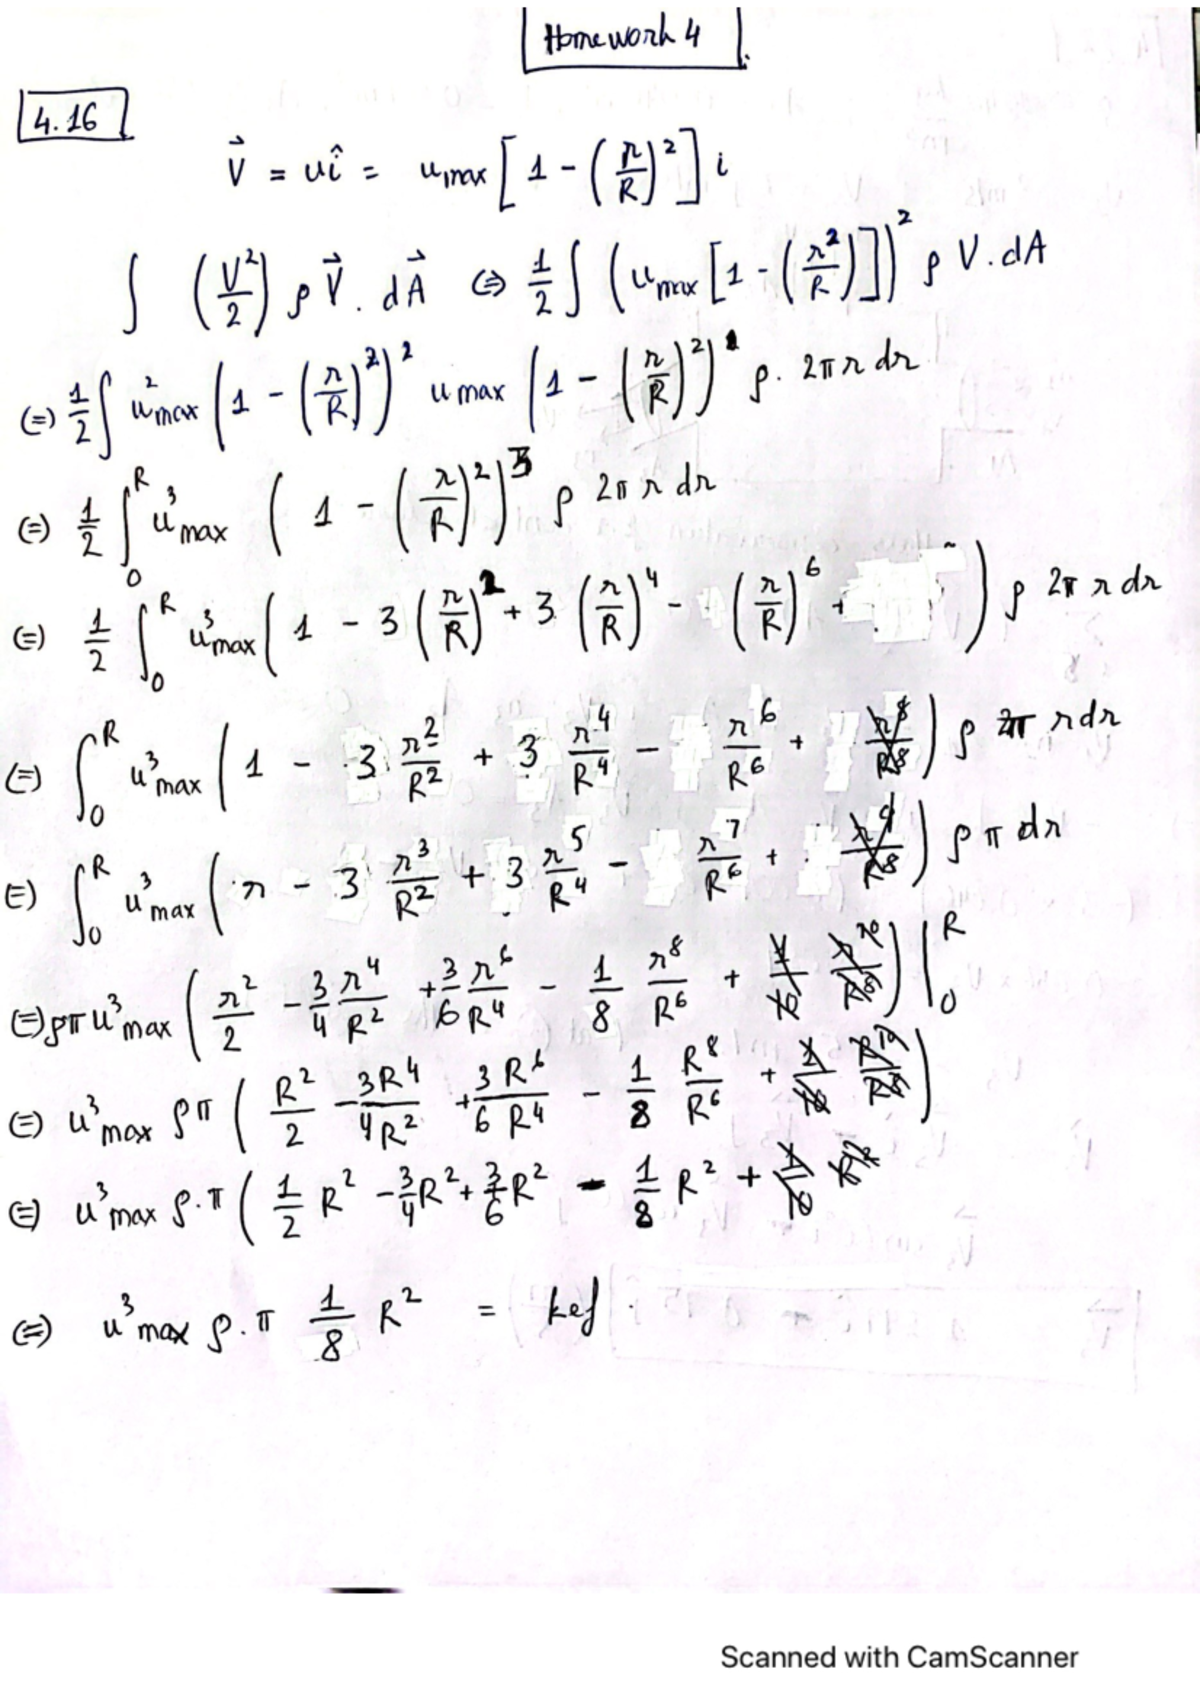 Homework 4
4.16
V⃗ = uî = u_max [1 - (r/R)²] i
∫ (V²/2) ρ V⃗ . dA⃗ ⇔ 1/2 ∫ (u_max [1 - (r²/R)])² ρ V . dA
(=) 1/2 ∫ u²_max (1 - (r/R)²)² u_max (1 - (r/R)²)¹ ρ . 2π r dr
(=) 1/2 ∫₀ᴿ u³_max (1 - (r/R)²)³ ρ 2π r dr
(=) 1/2 ∫₀ᴿ u³_max (1 - 3 (r/R)² + 3 (r/R)⁴ - (r/R)⁶ + ) ρ 2π r dr
(=) ∫₀ᴿ u³_max (1 - 3 r²/R² + 3 r⁴/R⁴ - r⁶/R⁶ + r⁸/R⁸) ρ π r dr
(=) ∫₀ᴿ u³_max (r - 3 r³/R² + 3 r⁵/R⁴ - r⁷/R⁶ + r⁹/R⁸) ρ π dr
(=) ρπ u³_max (r²/2 - 3/4 r⁴/R² + 3/6 r⁶/R⁴ - 1/8 r⁸/R⁶ + 1/10 r¹⁰/R⁸) |₀ᴿ
(=) u³_max ρπ (R²/2 - 3R⁴/4R² + 3R⁶/6R⁴ - 1/8 R⁸/R⁶ + 1/10 R¹⁰/R⁸)
(=) u³_max ρ.π (1/2 R² - 3/4 R² + 3/6 R² - 1/8 R² + 1/10 R²
(=) u³_max ρ.π 1/8 R² = kef .
Scanned with CamScanner